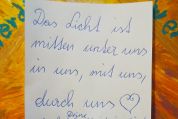 Das Licht ist
mitten unter uns
in uns, mit uns,
durch uns